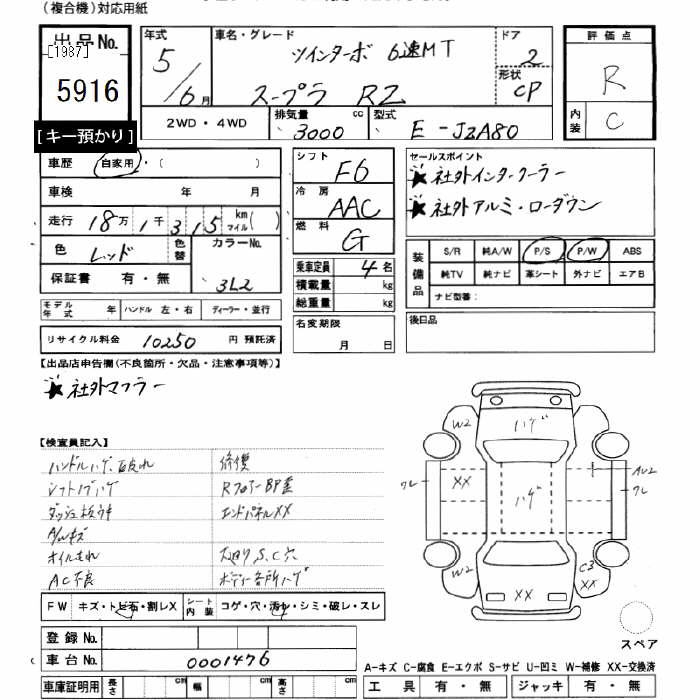 (複合機)対応用紙
出品No.
[1987]
5916
[キー預かり]
年式 5/6月
車名・グレード ツインターボ 6速MT
スープラ RZ
ドア 2
形状 CP
2WD・4WD
排気量 3000 cc
型式 E-JZA80
評価点 R
内装 C
車歴 自家用・( )
車検 年 月
走行 18万1千315 km マイル( )
色 レッド 色替 カラーNo. 3L2
保証書 有・無
シフト F6
冷房 AAC
燃料 G
乗車定員 4名
積載量 kg
総重量 kg
セールスポイント
★社外インタークーラー
★社外アルミ・ローダウン
装備品
S/R 純A/W P/S P/W ABS
純TV 純ナビ 革シート 外ナビ エアB
ナビ型番:
モデル年式 年 ハンドル 左・右 ディーラー・並行
名変期限 月 日
後日品
リサイクル料金 10250 円 預託済
【出品店申告欄(不良箇所・欠品・注意事項等)】
★社外マフラー
【検査員記入】
ハンドルハゲ、破れ
修復
シフトノブハゲ
ダッシュ板ウキ
エンドパネルXX
A/Wキズ
オイルもれ
下廻りS.C穴
AC不良
ボディー各所ハゲ
W2 ハゲ
クレ XX ハゲ AU2 クレ
W2 XX C3 XX
FW キズ・トビ石・割レX シート内装 コゲ・穴・汚レ・シミ・破レ・スレ
登録No.
車台No. 0001476
車庫証明用 長さ cm 幅 cm 高さ cm
スペア
A−キズ C−腐食 E−エクボ S−サビ U−凹ミ W−補修 XX−交換済
工具 有・無 ジャッキ 有・無